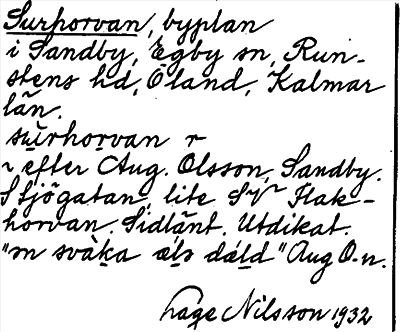 Surhorvan, byplan
i Sandby, Egby sn, Run-
stens hd, Öland, Kalmar
län.
su̇rhorvan r
efter Aug. Olsson, Sandby.
S Sjögatan, lite SV Flak-
horvan. Sidlänt. Utdikat.
"en svàka äls dåld" Aug O-n.
Lage Nilsson 1932